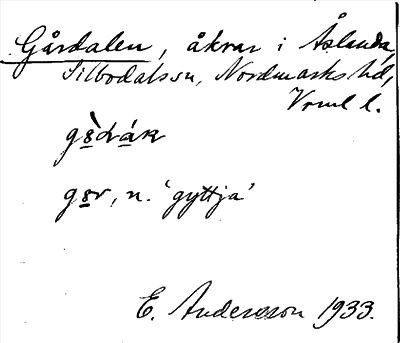 Gårdalen, åkrar i Åslanda,
Silbodals sn, Nordmarks hd,
Vrml l.
gs̱r, n. 'gyttja'
E. Andersson 1933.